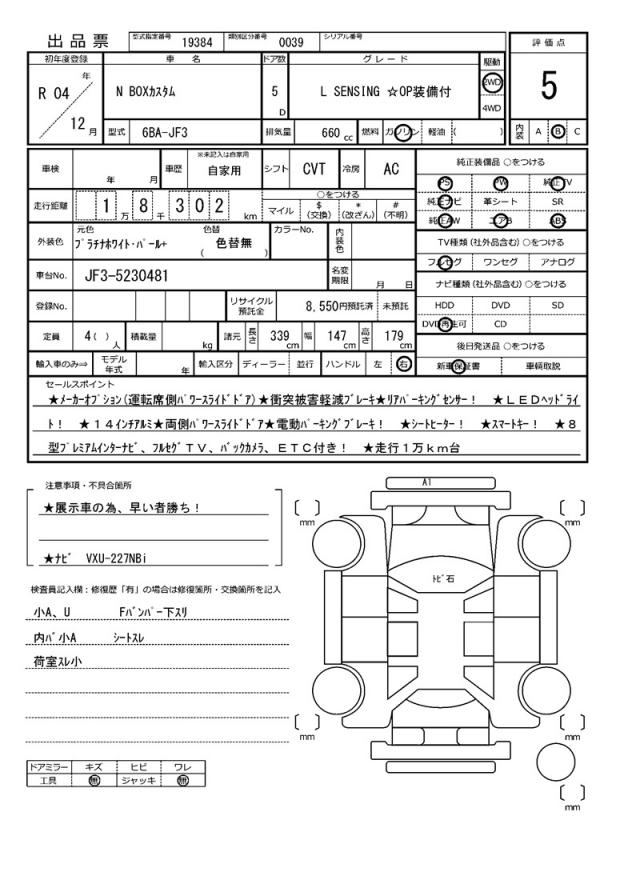 出品票 型式指定番号 19384 類別区分番号 0039 シリアル番号
初年度登録 車名 ドア数 グレード 駆動 評価点
R 04 年 N BOXカスタム 5 D L SENSING ☆OP装備付 2WD 4WD 5
12 月 型式 6BA-JF3 排気量 660 cc 燃料 ガソリン 軽油 ( ) 内装 A B C
車検 年 月 車歴 ※未記入は自家用 自家用 シフト CVT 冷房 AC 純正装備品 ○をつける
PS PW 純正TV
走行距離 1 万 8 千 3 0 2 km ○をつける 純正ナビ 革シート SR
マイル $ (交換) * (改ざん) # (不明) 純正AW エアB ABS
外装色 元色 色替 カラーNo. 内装色 TV種類 (社外品含む) ○をつける
プラチナホワイト・パール+ ( 色替無 ) フルセグ ワンセグ アナログ
車台No. JF3-5230481 名変期限 月 日 ナビ種類 (社外品含む) ○をつける
登録No. リサイクル預託金 8,550円預託済 未預託 HDD DVD SD
DVD再生可 CD
定員 4( ) 人 積載量 kg 諸元 長さ 339 cm 幅 147 cm 高さ 179 cm 後日発送品 ○をつける
輸入車のみ⇒ モデル年式 年 輸入区分 ディーラー 並行 ハンドル 左 右 新車保証書 車輌取説
セールスポイント
★メーカーオプション(運転席側パワースライドドア)★衝突被害軽減ブレーキ★リアパーキングセンサー! ★LEDヘッドライ
ト! ★14インチアルミ★両側パワースライドドア★電動パーキングブレーキ! ★シートヒーター! ★スマートキー! ★8
型プレミアムインターナビ、フルセグTV、バックカメラ、ETC付き! ★走行1万km台
注意事項・不具合箇所
★展示車の為、早い者勝ち!
★ナビ VXU-227NBi
検査員記入欄:修復歴「有」の場合は修復箇所・交換箇所を記入
小A、U Fバンパー下スリ
内バ小A シートスレ
荷室スレ小
ドアミラー キズ ヒビ ワレ
工具 無 ジャッキ 無
A1
[ ] mm [ ] mm
トビ石
[ ] mm [ ] mm
[ ] mm